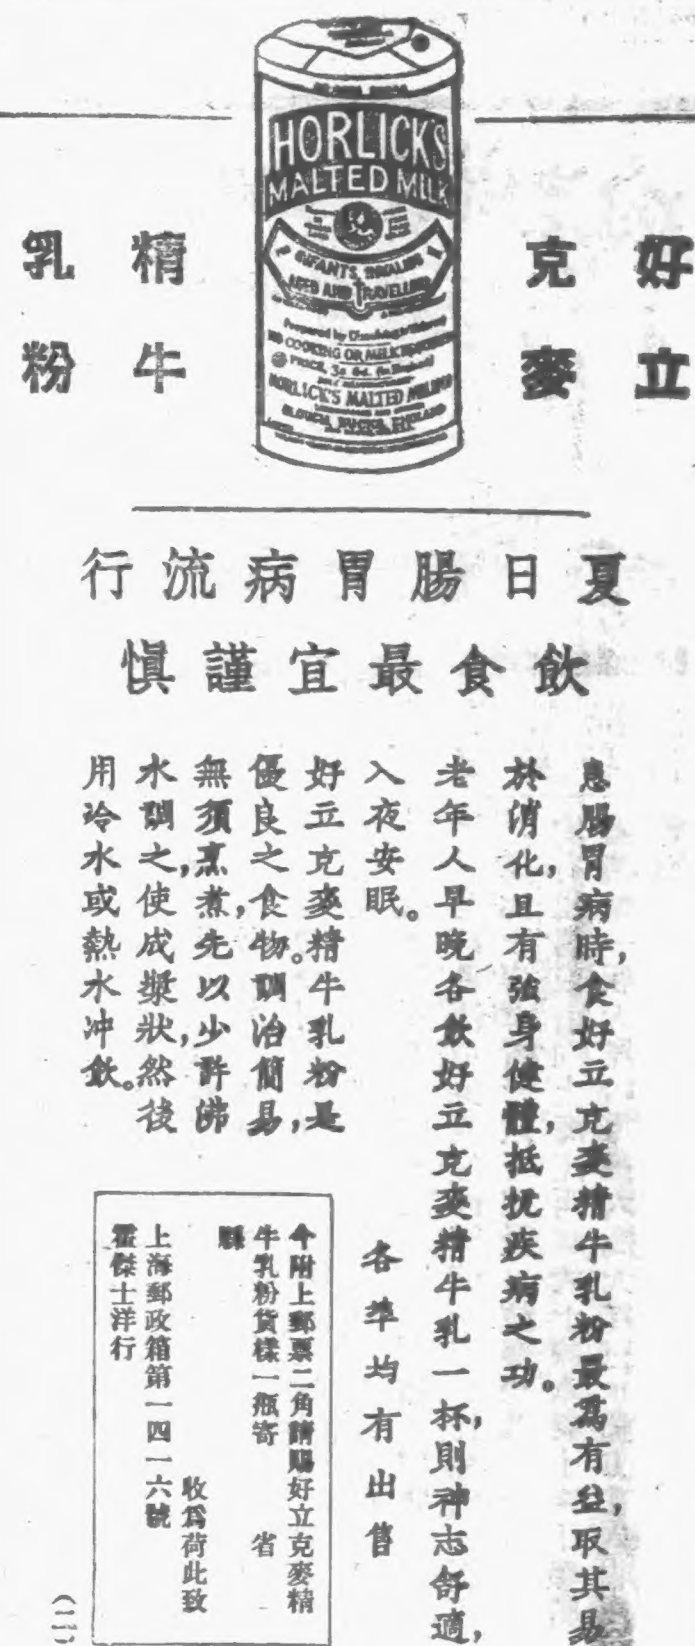 好立克麥精牛乳粉
HORLICK'S
MALTED MILK
INFANTS, INVALIDS
AGED AND TRAVELLERS
HORLICK'S MALTED MILK
SLOUGH, BUCKS, ENGLAND
夏日腸胃病流行
飲食最宜謹慎
患腸胃病時,食好立克麥精牛乳粉最爲有益,取其易
於消化,且有強身健體,抵抗疾病之功。
老年人早晚各飲好立克麥精牛乳一杯,則神志舒適,
入夜安眠。
好立克麥精牛乳粉是
優良之食物。調治簡易,
無須烹煮,先以少許沸
水調之,使成漿狀,然後
用冷水或熱水沖飲。
各準均有出售
今附上郵票二角請賜好立克麥精
牛乳粉貨樣一瓶寄 省
縣
收爲荷此致
上海郵政箱第一四一六號
霍傑士洋行
(二)